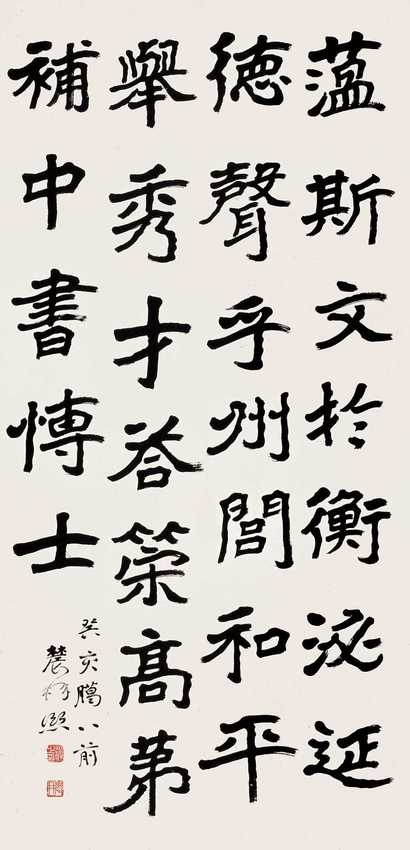 蕰斯文於衡泌延
德聲乎州閭和平
舉秀才荅策高第
補中書博士
癸亥臈八前
農髯熙